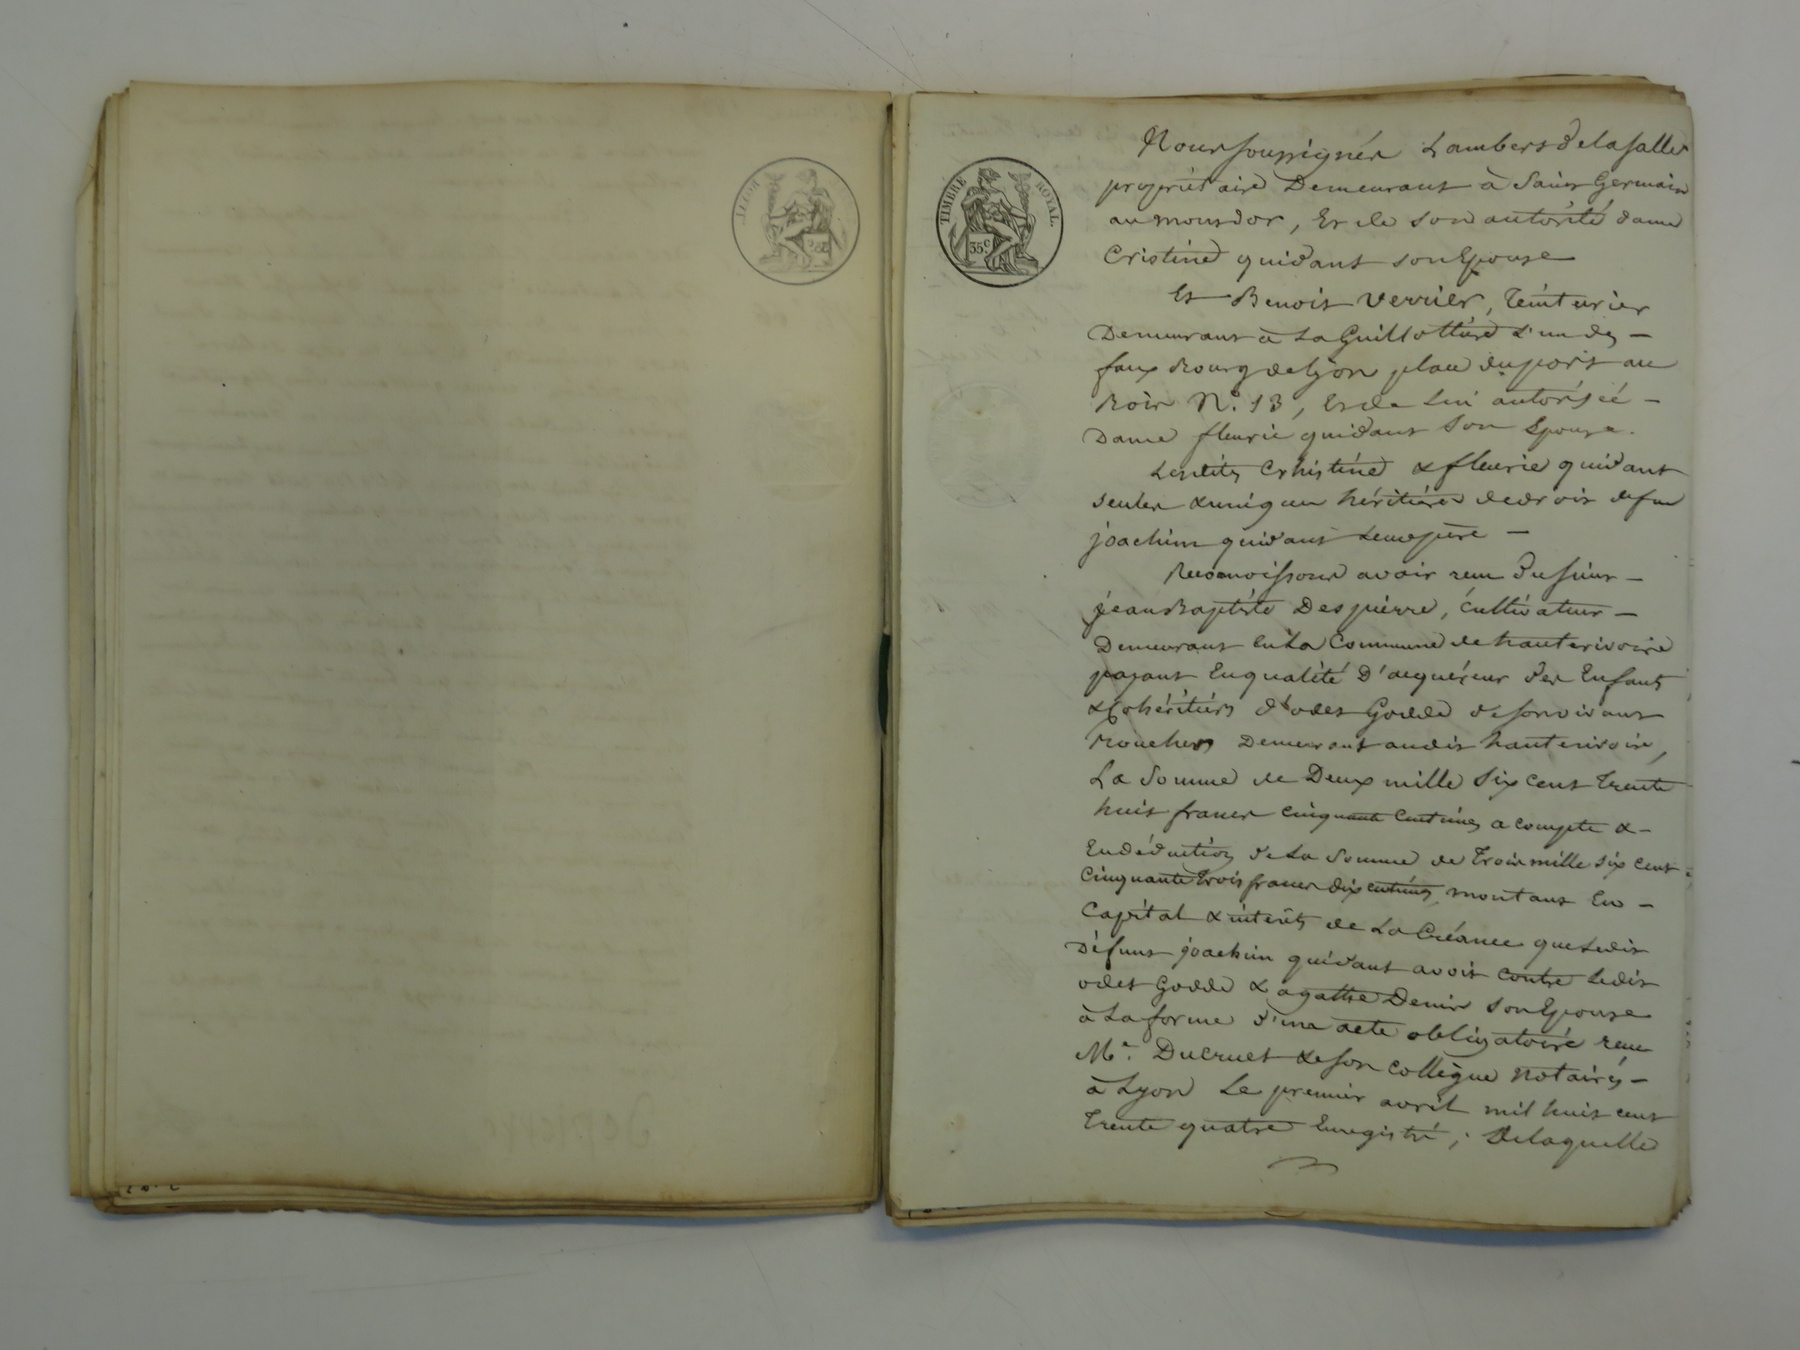 TIMBRE ROYAL
35c
Nous soussignés Lambert Delasalle
propriétaire Demeurant à Saint Germain
au montdor, Et de son autorité dame
Cristine quidant son Epouse
Et Benoit Verrier, Teinturier
Demeurant à La Guillottière L'un des
faux Bourg de Lyon place du port au
Boir N.° 13, Et de Lui autorisée
Dame fleurie quidant Son Epouse.
Lesdites Crhistine & fleurie quidant
seules & unique héritières de droit de feu
joachim quidant Leur père
Reconnoissons avoir reçu du sieur
jean Baptiste Despierre, Cultivateur
Demeurant En La Commune de hauterivoire
payant En qualité D'acquéreur des Enfants
& Cohéritiers d'odet Godde de son vivant
Boucher Demeurant audit hauterivoire,
La Somme de Deux mille Six cent Trente
huit francs cinquante Centimes a compte &
En déduction de La Somme de Trois mille six cent
Cinquante trois francs dix centimes montant En
Capital & intérêts de La Créance que Ledit
Défunt joachim quidant avoit contre Ledit
odet Godde & agathe Denis Son Epouse
à La forme d'un acte obligatoire reçu
Me. Ducruet & son collègue Notaires
à Lyon Le premier avril mil huit cent
Trente quatre Enregistré ; De laquelle